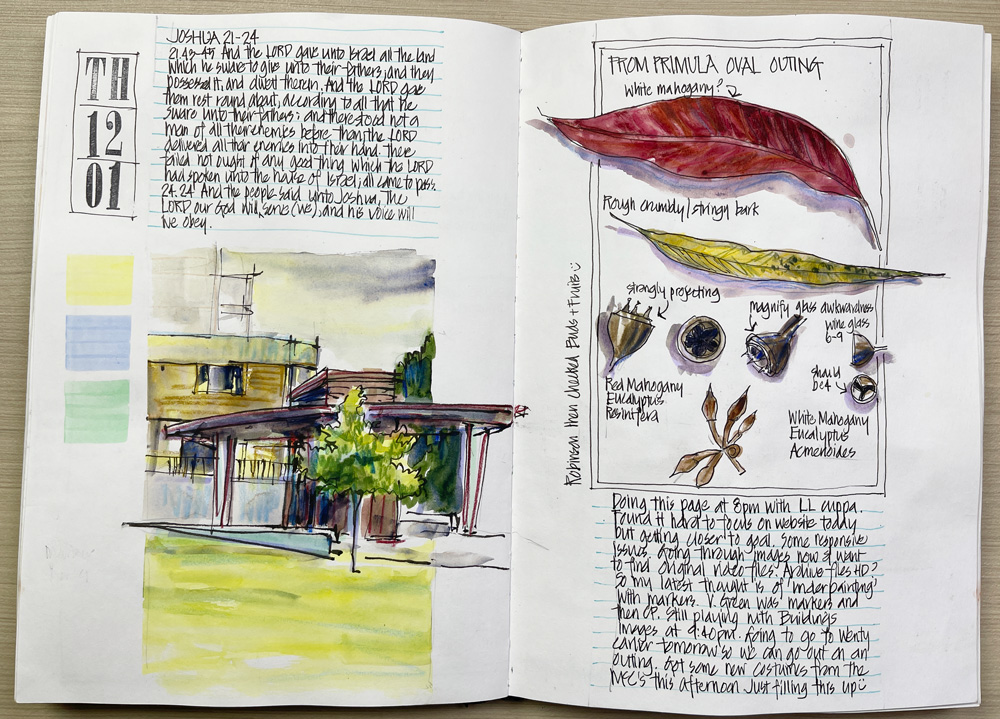 TH
12
01
JOSHUA 21-24
21.43-45 And the LORD gave unto Israel all the land
which he sware to give unto their fathers; and they
possessed it, and dwelt therein. And the LORD gave
them rest round about, according to all that he
sware unto their fathers: and there stood not a
man of all their enemies before them; the LORD
delivered all their enemies into their hand. There
failed not ought of any good thing which the LORD
had spoken unto the house of Israel; all came to pass.
24.24 And the people said unto Joshua, The
LORD our God will serve (we), and his voice will
we obey.
FROM PRIMULA OVAL OUTING
White mahogany?
Rough crumbly/stringy bark
strongly projecting
magnify glass awkwardness
wine glass
6-9
should
be 4
Red Mahogany
Eucalyptus
Resinifera
White Mahogany
Eucalyptus
Acmenoides
Robinson then checked Buds + Fruits
Doing this page at 8pm with LL cuppa.
Found it hard to focus on website today
but getting closer to goal. Some responsive
issues. Going through images now & want
to find original video files. Archive files HD?
So my latest thought is of 'underpainting'
with markers. V. Green was markers and
then CP. Still playing with Buildings
Images at 9:40pm. Going to go to Wenty
earlier tomorrow so we can go out on an
outing. Got some new costumes from the
this afternoon Just filling this up